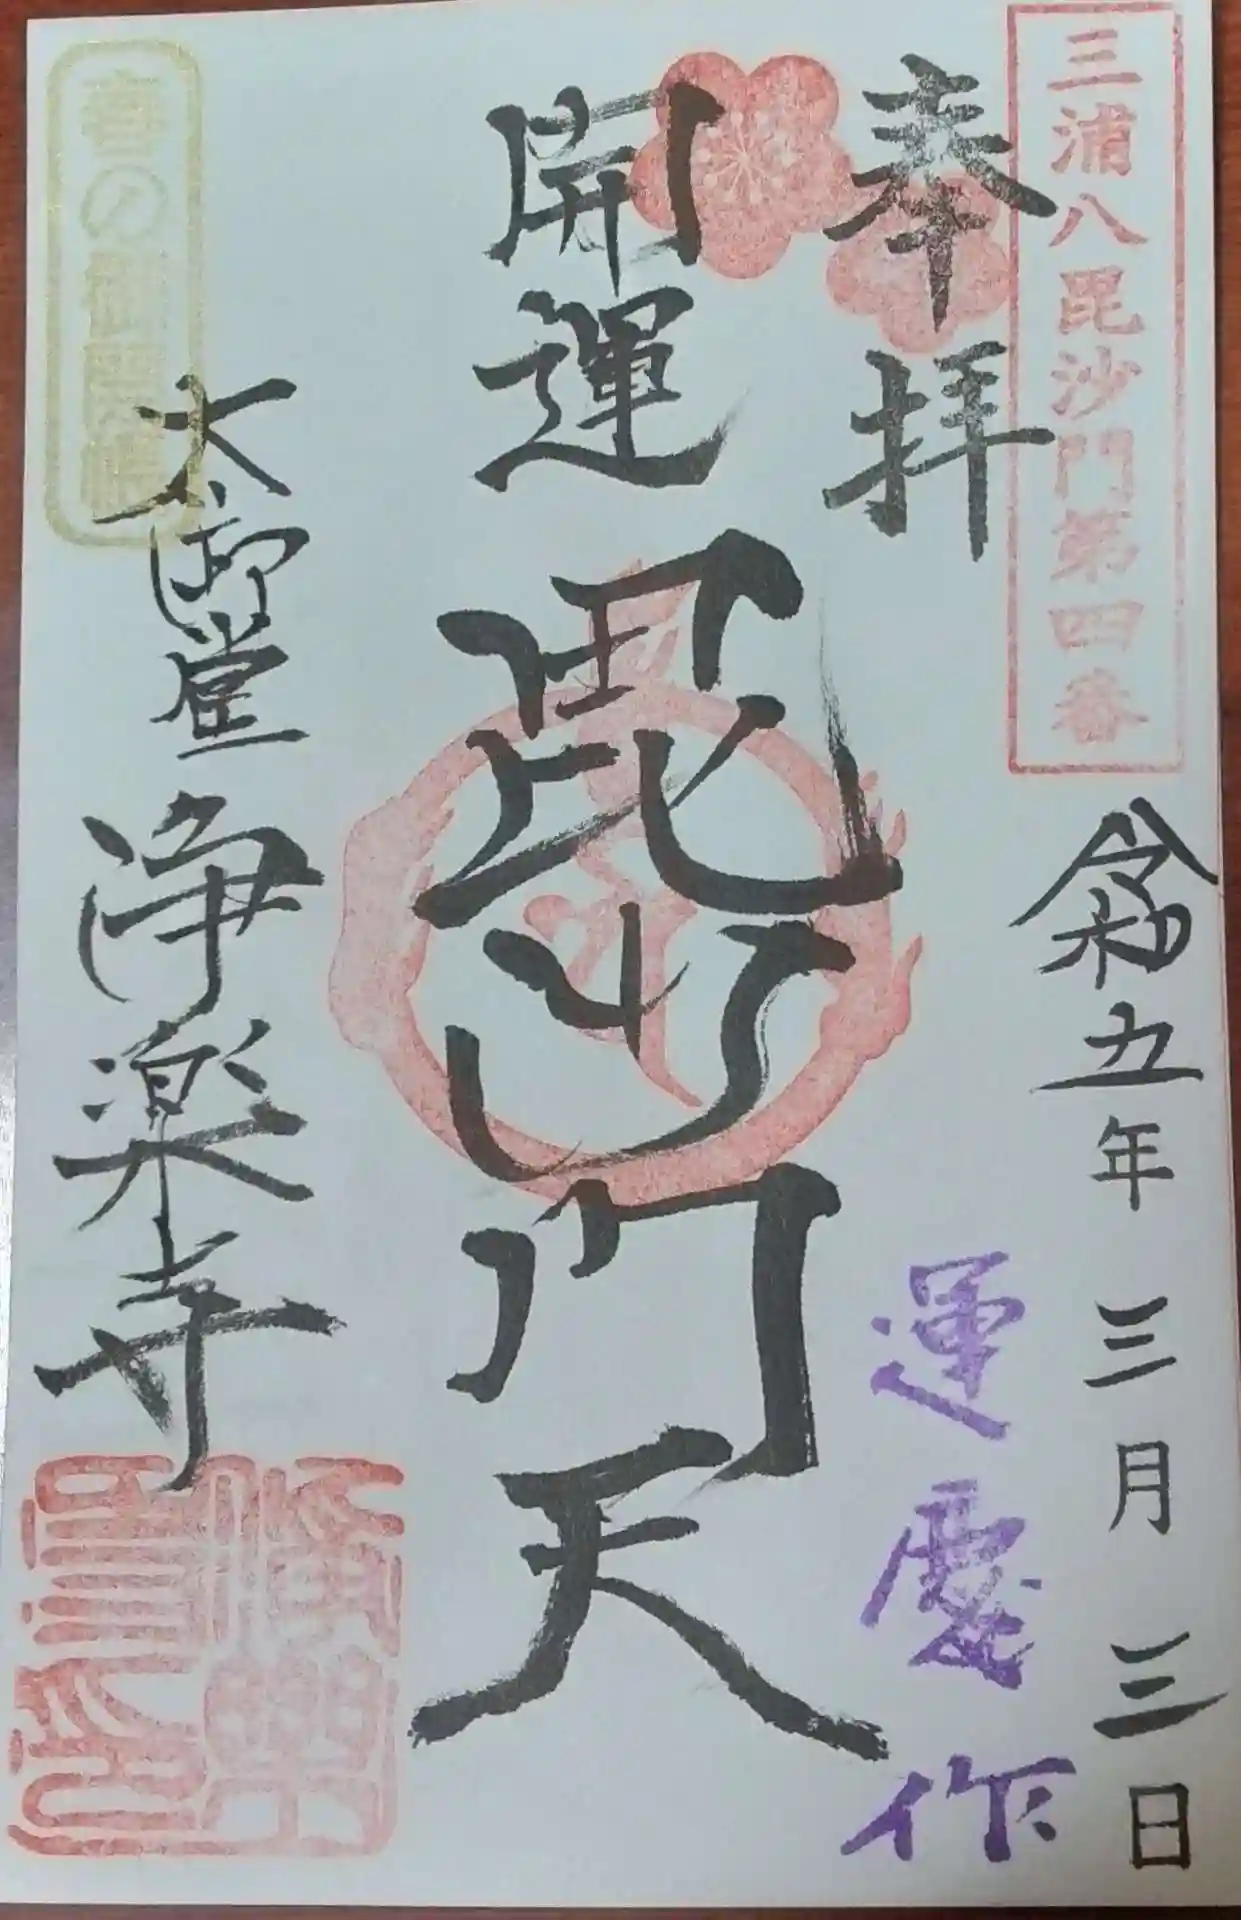 三浦八毘沙門第四番
奉拝
令和五年三月三日
運慶作
開運
毘沙門天
春の御開帳
大御堂
浄楽寺